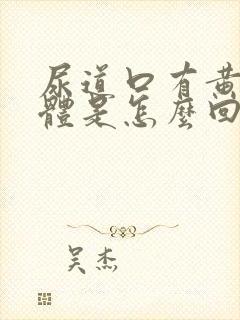 尿道口有黃
體是怎麼回
吴杰